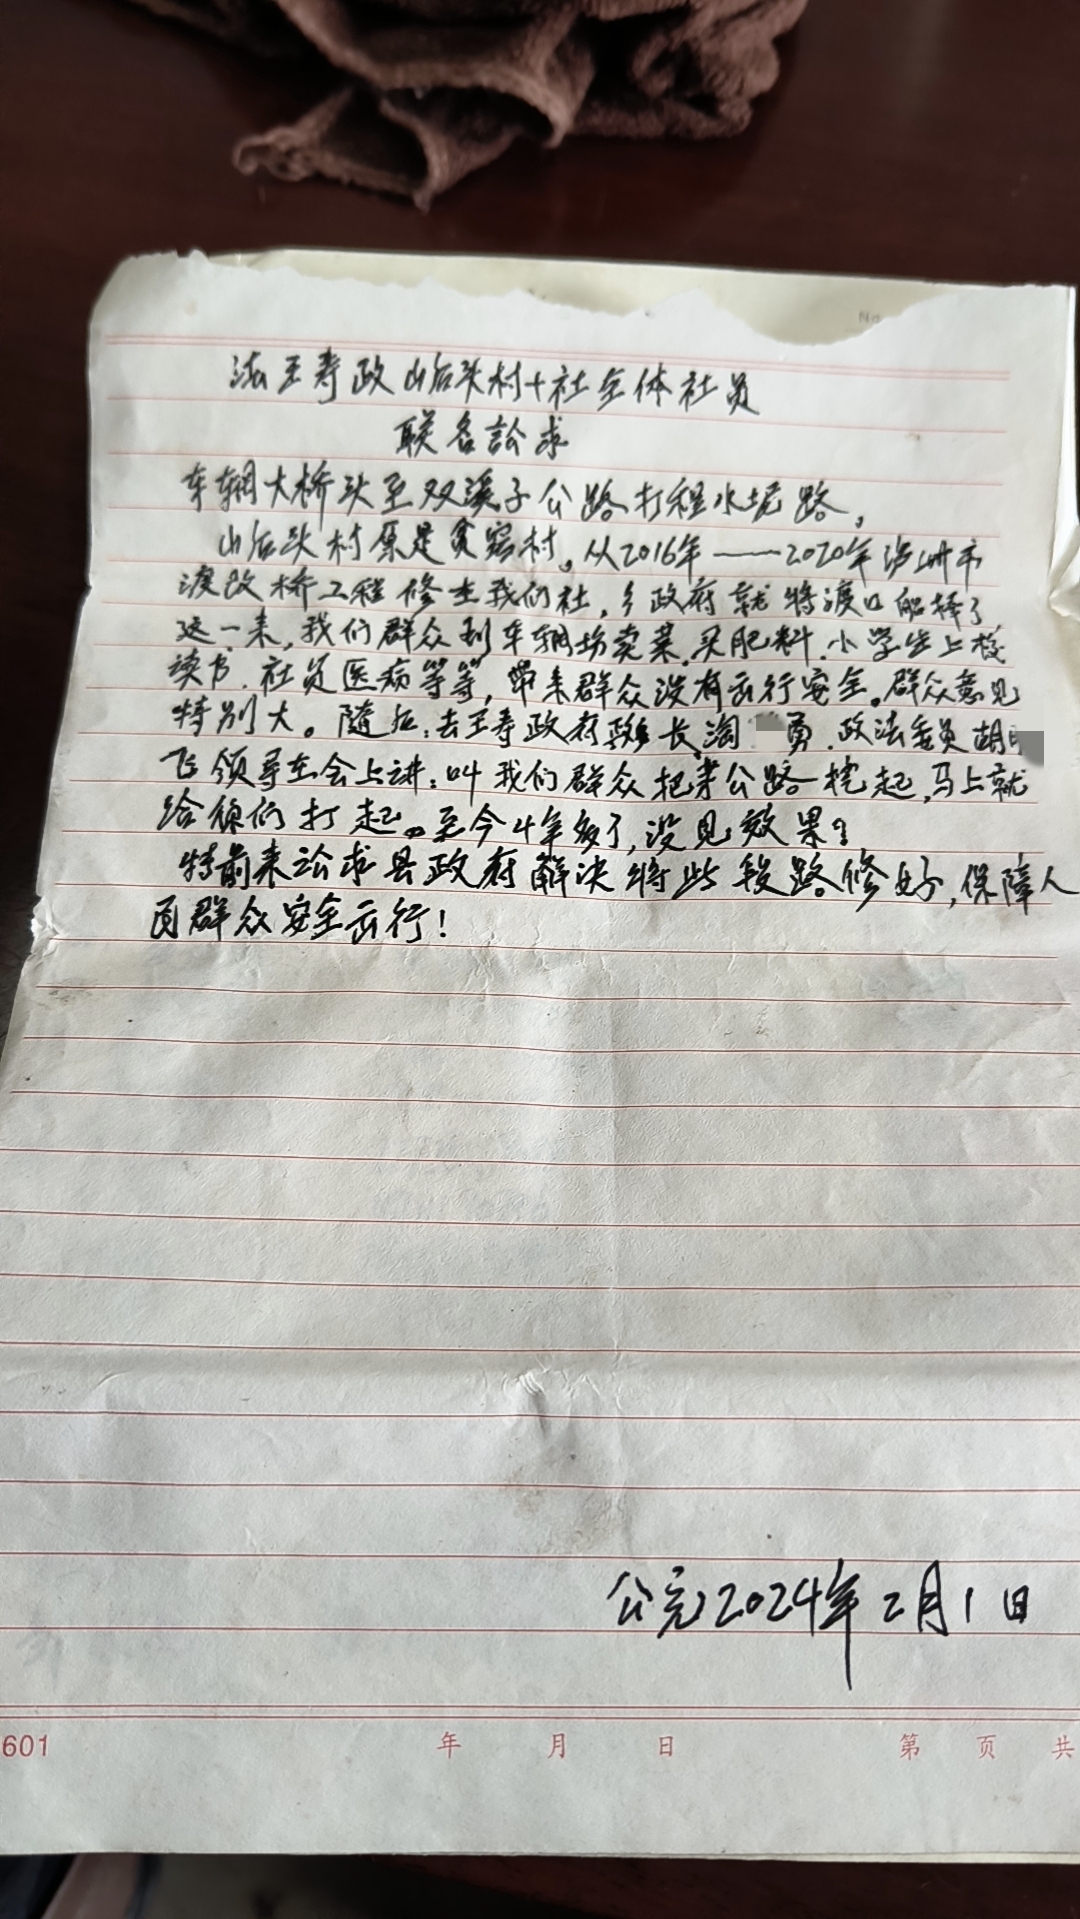 法王寺政山后头村十社全体社员
联名訟求
车辋大桥头至双溪子公路打程水坭路,
山后头村原是贫窑村。从2016年——2020年泸州市
渡改桥工程修在我们社,乡政府就将渡口船择了
这一来,我们群众到车辋场卖菜.买肥料.小学生上校
读书.社员医病等等,带来群众没有击行安全。群众意见
特别大。随后:去王寺政府 长淘 勇.政法委员胡
飞领导在会上讲:叫我们群众把茅公路挖起,马上就
给你们打起。至今4年多了,没见效果?
特前来訟求县政府解决将此段路修好,保障人
民群众安全击行!
公元2024年2月1日
601
年 月 日 第 页 共